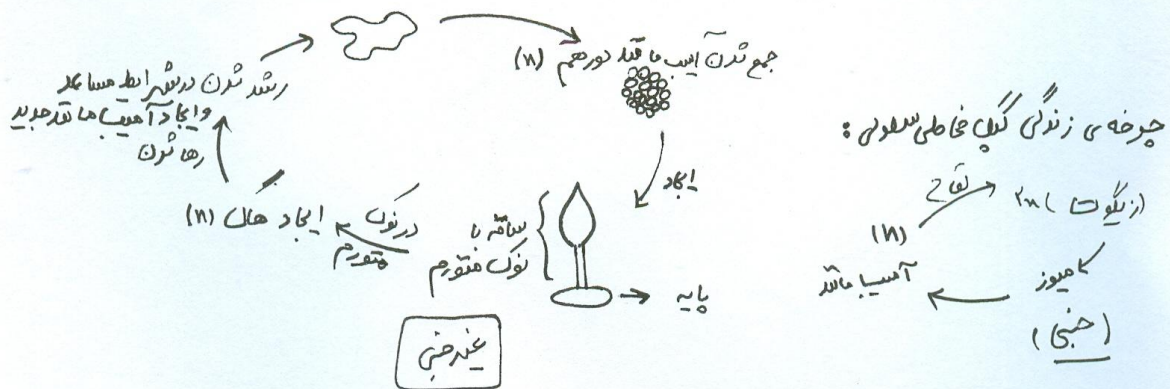 چرخه ی زندگی کپک مخاطی سلولی :
لقاح
(زیگوت) ۲n
(n)
میوز
آمیب مانند
(جنسی)
جمع شدن آمیب مانند دور هم (n)
ایجاد
ساقه با
نوک متورم
پایه
غیرجنسی
در نوک
متورم
ایجاد هاگ (n)
رها شدن
رشد شدن در شرایط مساعد
و ایجاد آمیب مانند جدید